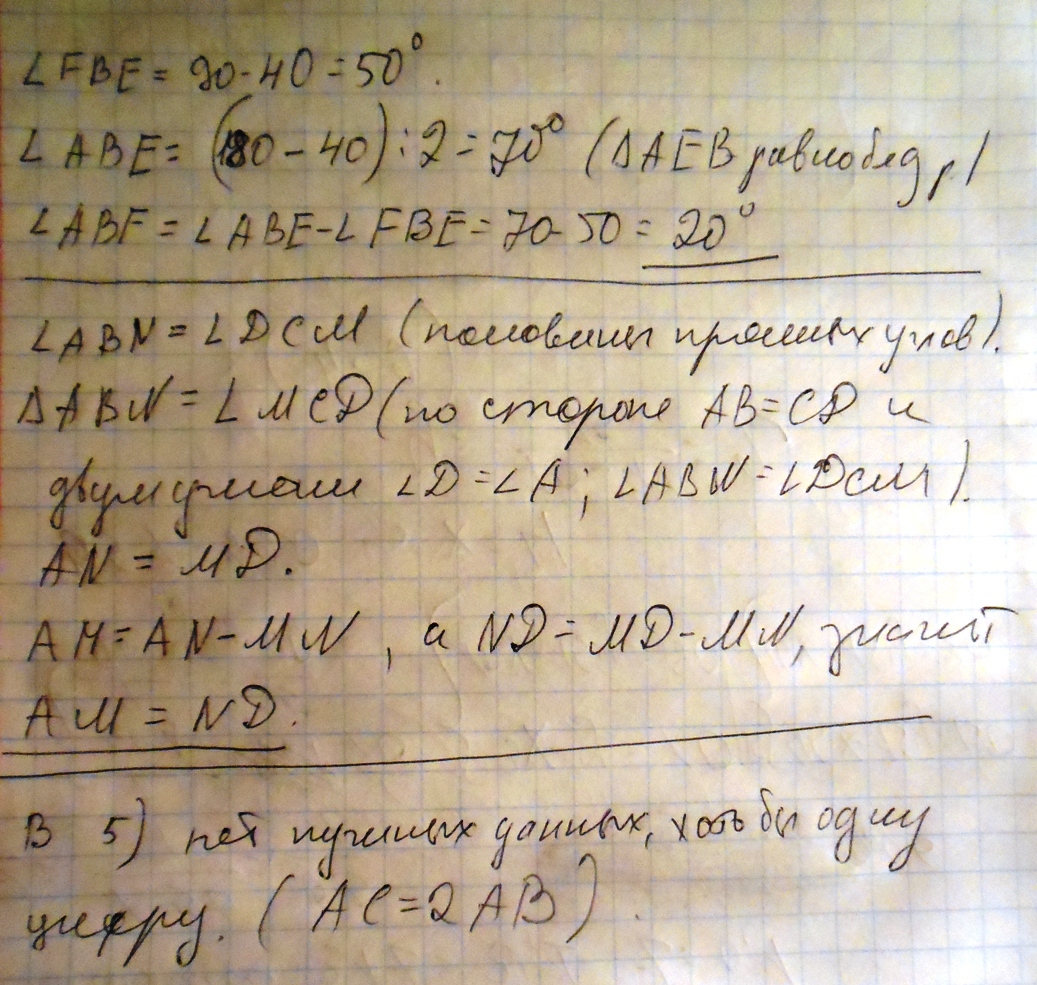 ∠FBE = 90-40 = 50°.
∠ABE = (180 - 40) : 2 = 70° (ΔAEB равнобедр.)
∠ABF = ∠ABE-∠FBE = 70-50 = 20°
∠ABN = ∠DCM (половины прямых углов).
ΔABN = ∠MCD (по стороне AB=CD и
двум углам ∠D=∠A; ∠ABN=∠DCM).
AN = MD.
AM = AN-MN, а ND = MD-MN, значит
AM = ND.
В 5) нет нужных данных, хоть бы одну
цифру. (AC=2AB).